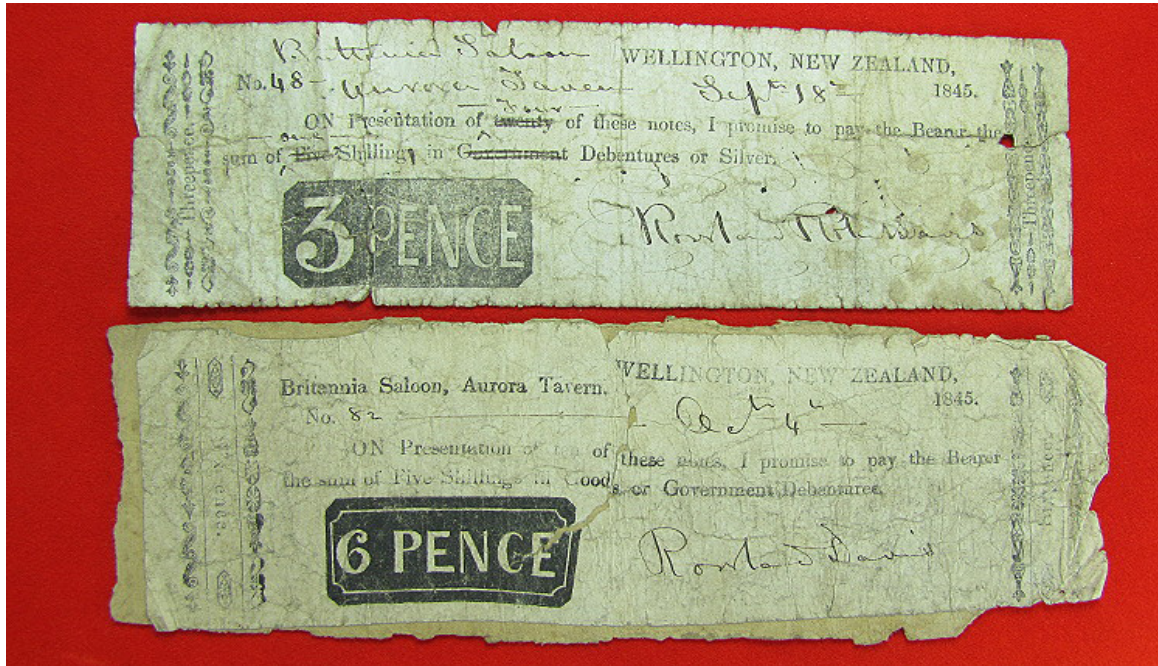 Britannia Saloon
WELLINGTON, NEW ZEALAND,
No. 48 - Aurora Tavern
Sept 18th 1845.
Four
ON Presentation of twenty of these notes, I promise to pay the Bearer the
one
sum of Five Shillings in Government Debentures or Silver.
3 PENCE
Rowland Davis
Threepence.
Threepence
WELLINGTON, NEW ZEALAND,
Britannia Saloon, Aurora Tavern.
1845.
No. 82
Oct 4th
ON Presentation of ten of these notes, I promise to pay the Bearer
the sum of Five Shillings in Goods or Government Debentures.
6 PENCE
Rowland Davis